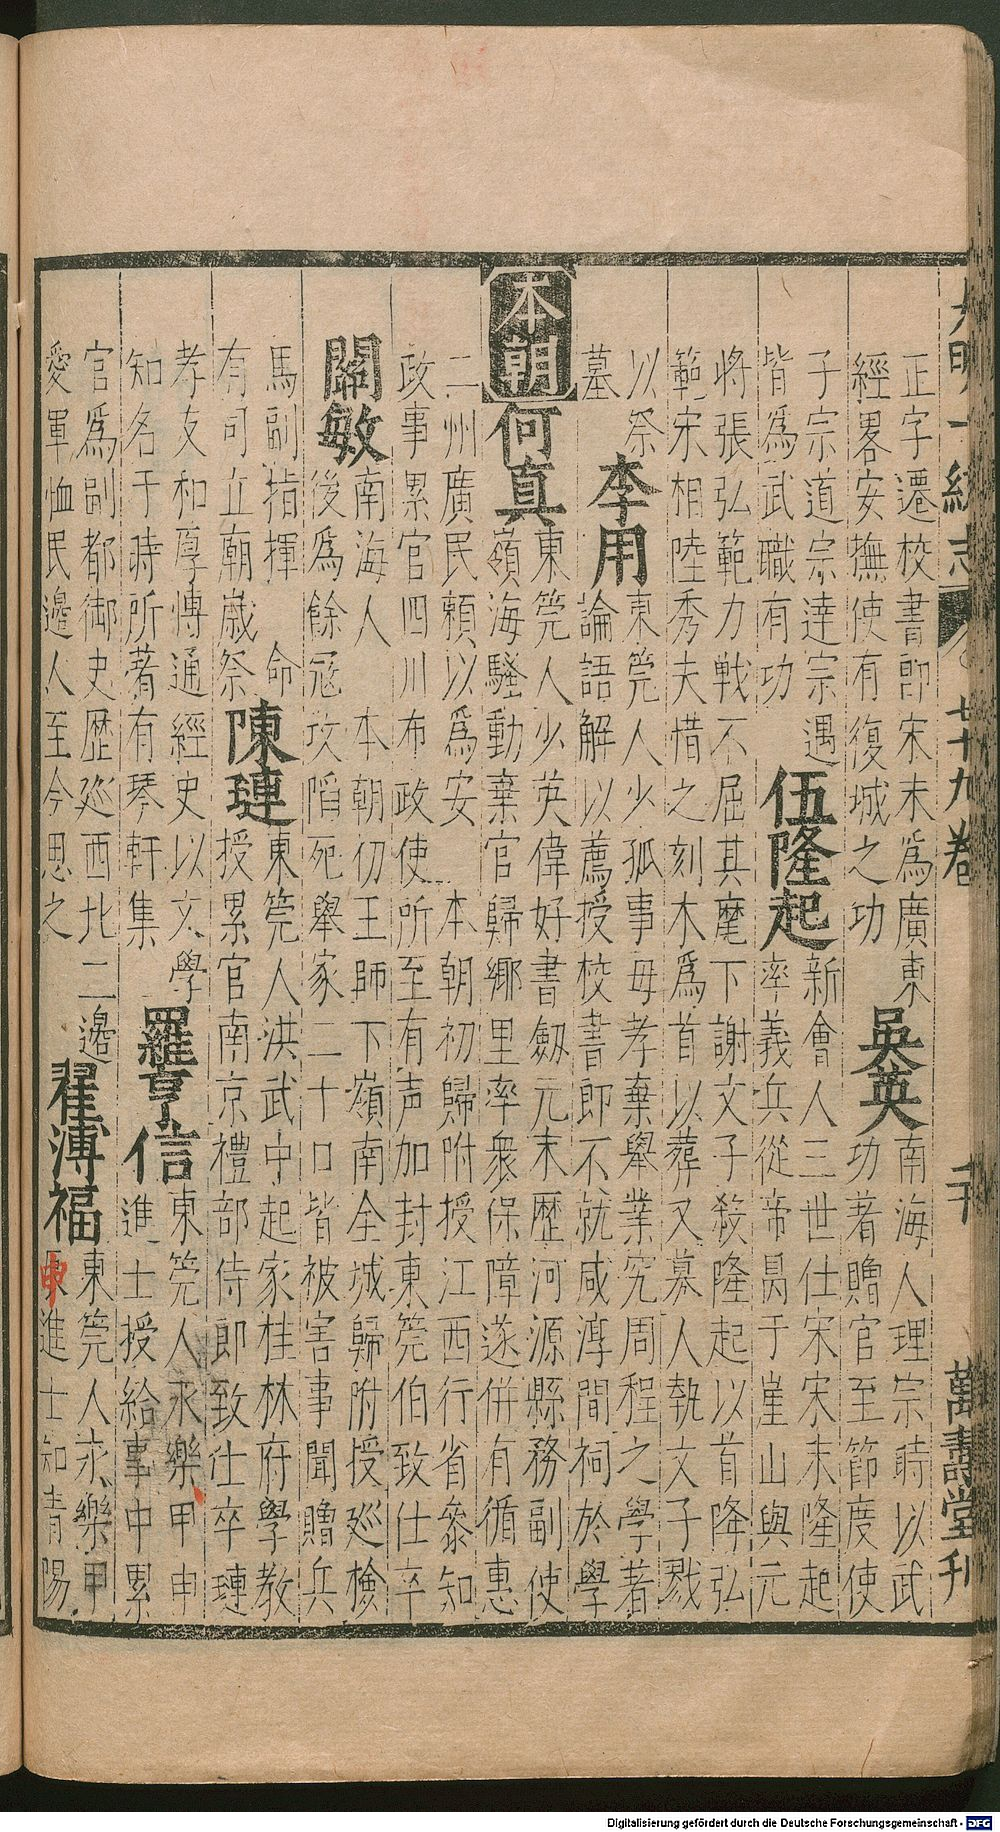 大明一統志 七十九卷 千 萬壽堂刊
正字遷校書郎宋末爲廣東
經畧安撫使有復城之功
吳英
南海人理宗時以武
功著贈官至節度使
子宗道宗達宗遇
皆爲武職有功
伍隆起
新會人三世仕宋宋末隆起
率義兵從帝昺于崖山與元
將張弘範力戰不屈其麾下謝文子殺隆起以首降弘
範宋相陸秀夫惜之刻木爲首以葬又募人執文子戮
以祭
墓
李用
東筦人少孤事母孝棄舉業究周程之學著
論語解以薦授校書郎不就咸淳間祠於學
本朝
何真
東筦人少英偉好書劔元末歷河源縣務副使
嶺海騷動棄官歸鄉里率衆保障遂併有循惠
二州廣民頼以爲安 本朝初歸附授江西行省參知
政事累官四川布政使所至有声加封東筦伯致仕卒
關敏
南海人 本朝初王師下嶺南全城歸附授廵檢
後爲餘冦攻陷死舉家二十口皆被害事聞贈兵
馬副指揮 命
有司立廟嵗祭
陳璉
東筦人洪武中起家桂林府學教
授累官南京禮部侍郎致仕卒璉
孝友和厚愽通經史以文學
知名于時所著有琴軒集
羅亨信
東筦人永樂甲申
進士授給事中累
官爲副都御史歷廵西北二邊
愛軍恤民邊人至今思之
翟溥福
東筦人永樂甲
申進士知青陽
Digitalisierung gefördert durch die Deutsche Forschungsgemeinschaft - DFG